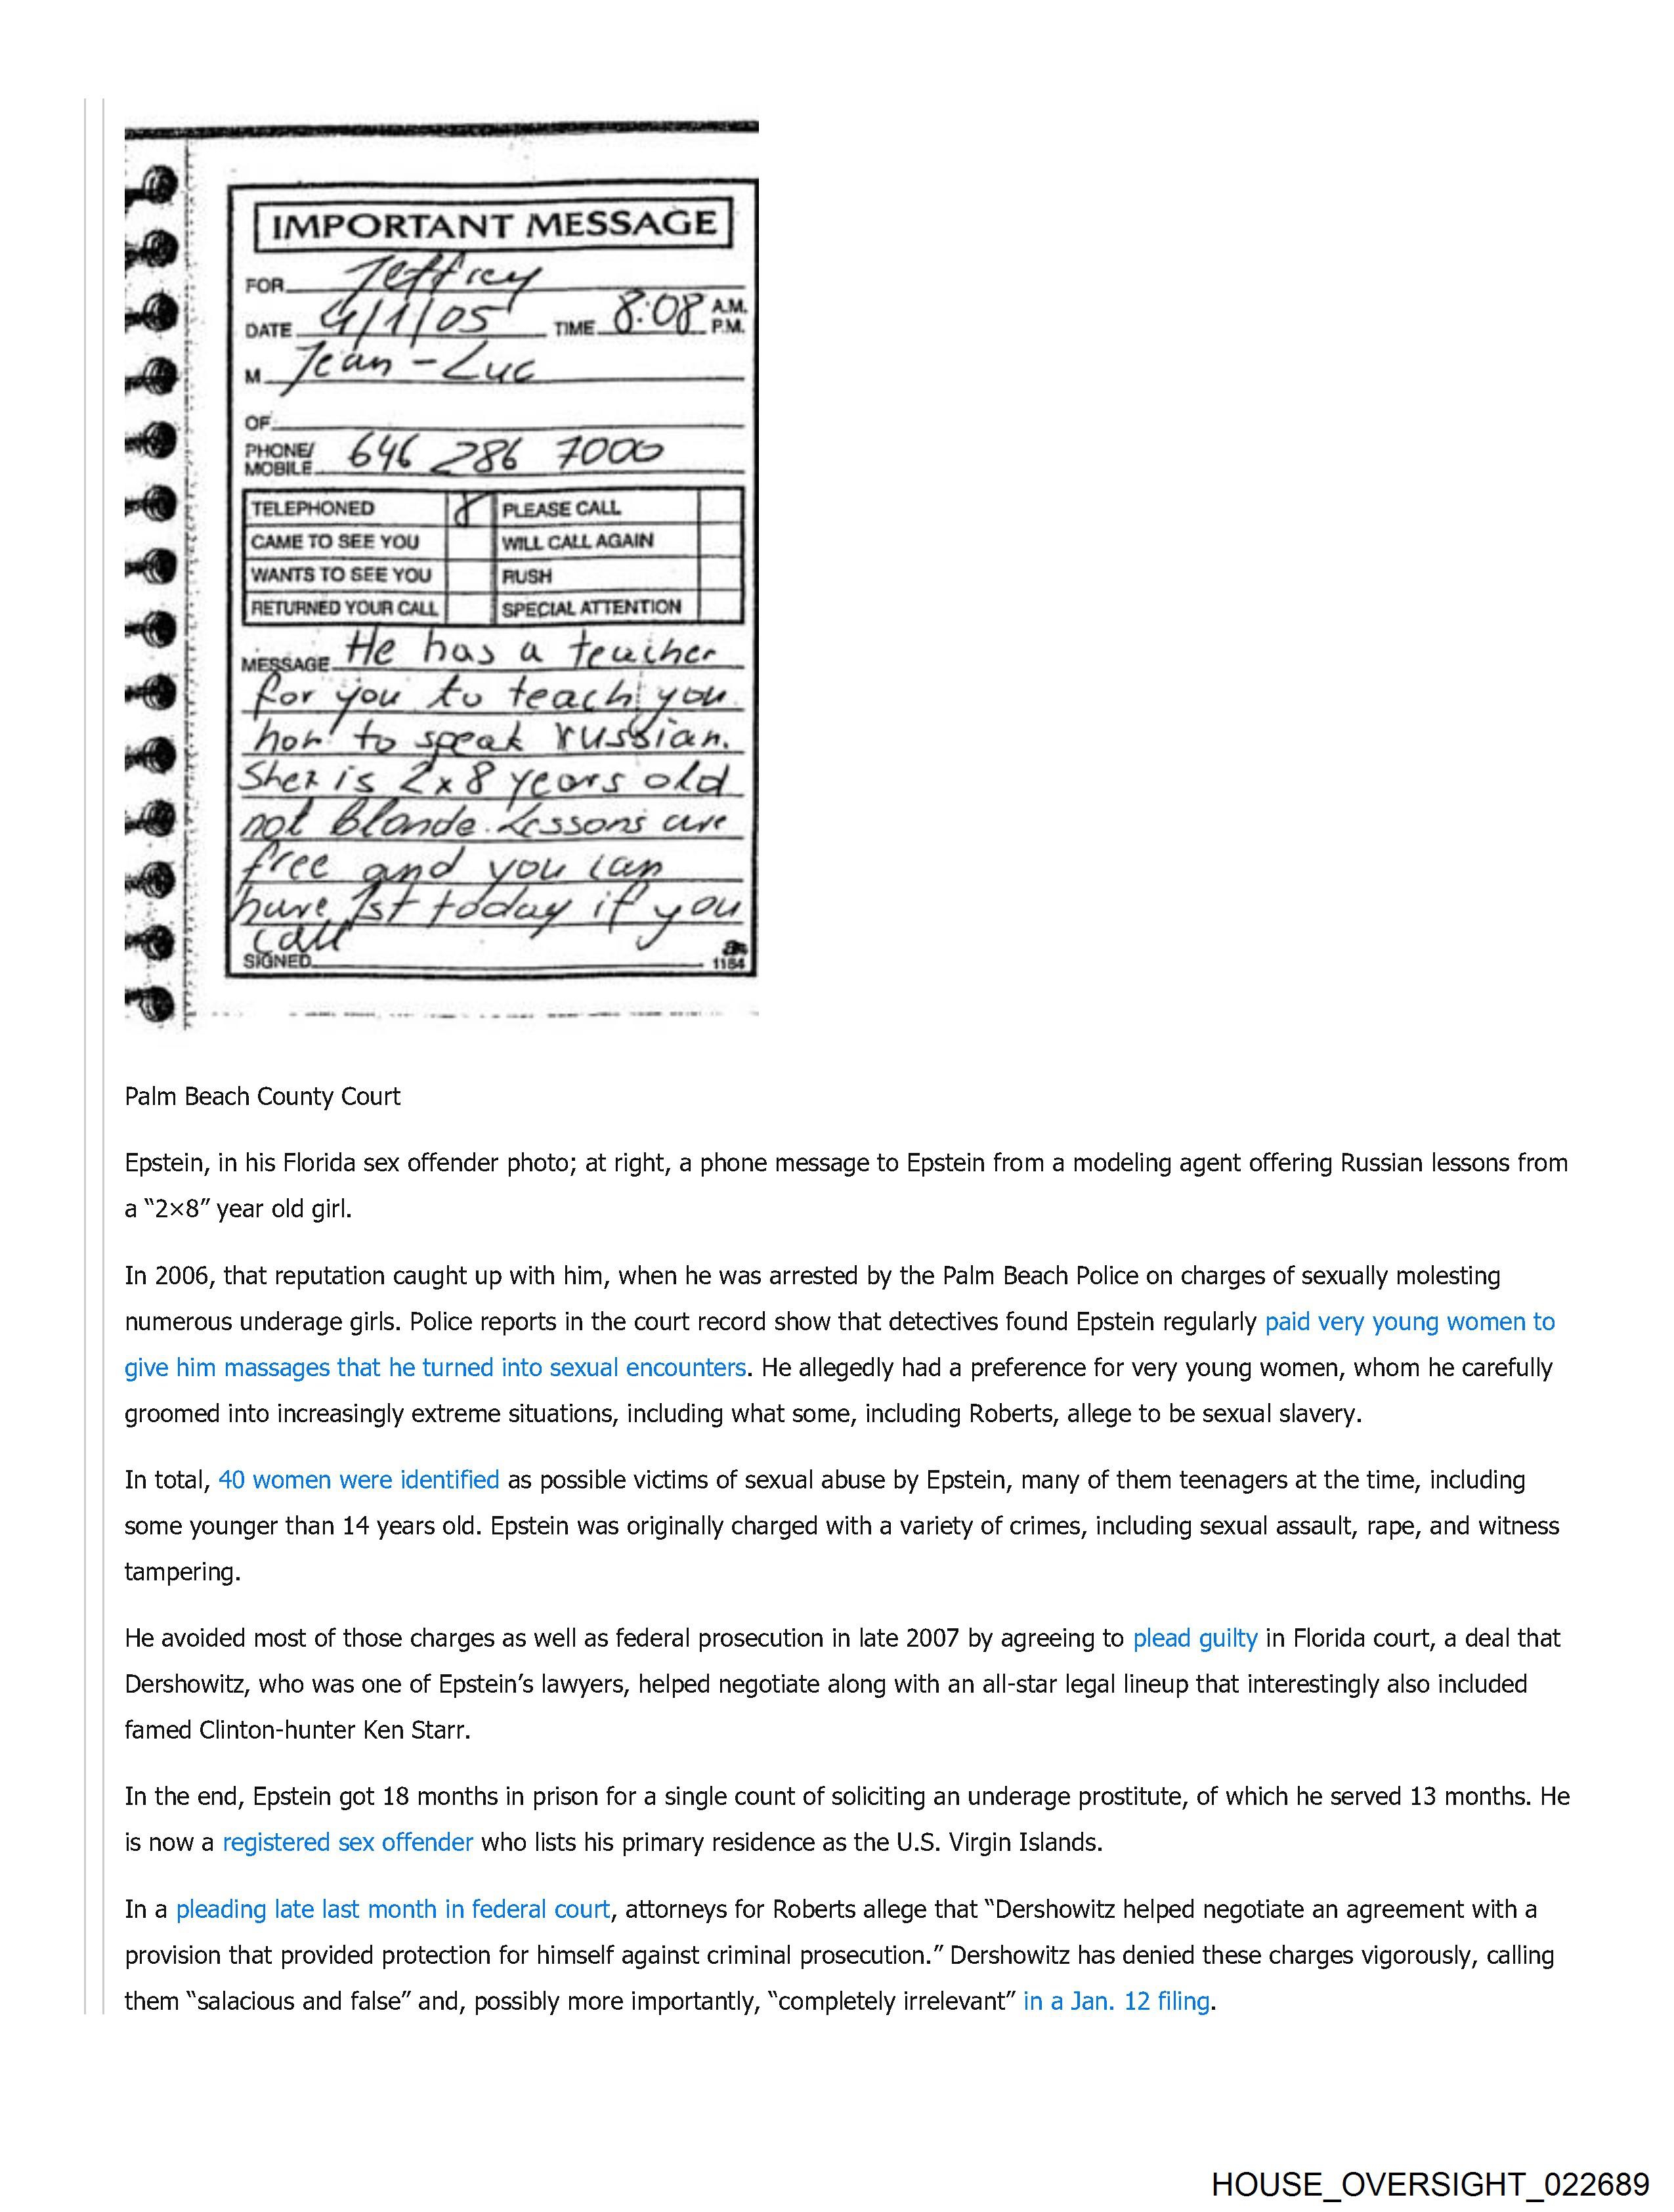 IMPORTANT MESSAGE
FOR Jeffrey
DATE 4/1/05 TIME 8:08 A.M. P.M.
M Jean-Luc
OF
PHONE/ MOBILE 646 286 7000
TELEPHONED PLEASE CALL
CAME TO SEE YOU WILL CALL AGAIN
WANTS TO SEE YOU RUSH
RETURNED YOUR CALL SPECIAL ATTENTION
MESSAGE He has a teacher
for you to teach you
how to speak russian.
She is 2x8 years old
not blonde. Lessons are
free and you can
have 1st today if you
call
SIGNED 1184
Palm Beach County Court
Epstein, in his Florida sex offender photo; at right, a phone message to Epstein from a modeling agent offering Russian lessons from
a “2×8” year old girl.
In 2006, that reputation caught up with him, when he was arrested by the Palm Beach Police on charges of sexually molesting
numerous underage girls. Police reports in the court record show that detectives found Epstein regularly paid very young women to
give him massages that he turned into sexual encounters. He allegedly had a preference for very young women, whom he carefully
groomed into increasingly extreme situations, including what some, including Roberts, allege to be sexual slavery.
In total, 40 women were identified as possible victims of sexual abuse by Epstein, many of them teenagers at the time, including
some younger than 14 years old. Epstein was originally charged with a variety of crimes, including sexual assault, rape, and witness
tampering.
He avoided most of those charges as well as federal prosecution in late 2007 by agreeing to plead guilty in Florida court, a deal that
Dershowitz, who was one of Epstein’s lawyers, helped negotiate along with an all-star legal lineup that interestingly also included
famed Clinton-hunter Ken Starr.
In the end, Epstein got 18 months in prison for a single count of soliciting an underage prostitute, of which he served 13 months. He
is now a registered sex offender who lists his primary residence as the U.S. Virgin Islands.
In a pleading late last month in federal court, attorneys for Roberts allege that “Dershowitz helped negotiate an agreement with a
provision that provided protection for himself against criminal prosecution.” Dershowitz has denied these charges vigorously, calling
them “salacious and false” and, possibly more importantly, “completely irrelevant” in a Jan. 12 filing.
HOUSE_OVERSIGHT_022689